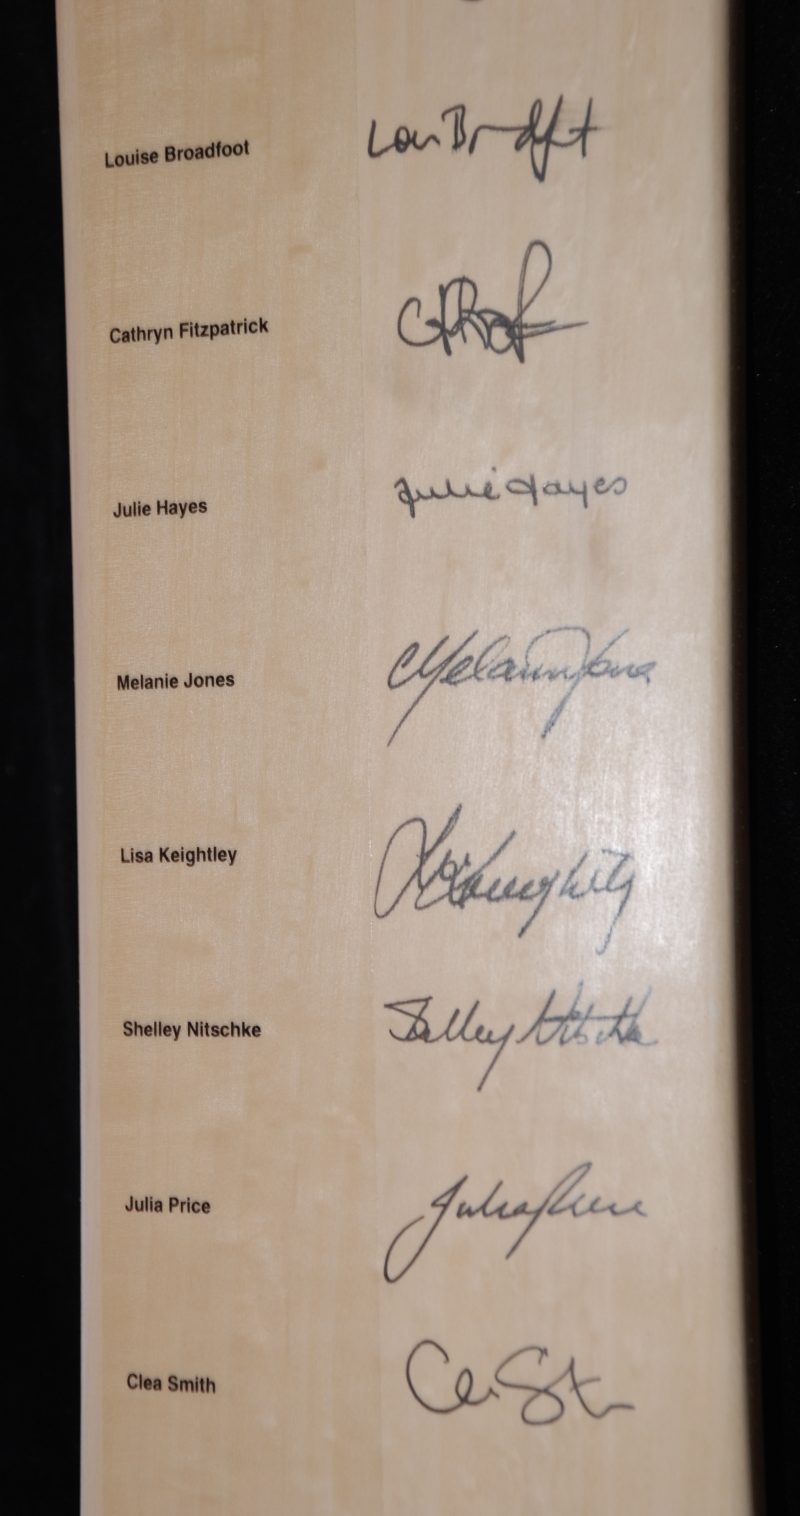 Louise Broadfoot Lou Brodft
Cathryn Fitzpatrick
Julie Hayes Julie Hayes
Melanie Jones Melanie Jones
Lisa Keightley Lisa Keightley
Shelley Nitschke Shelley Nitschke
Julia Price Julia Price
Clea Smith